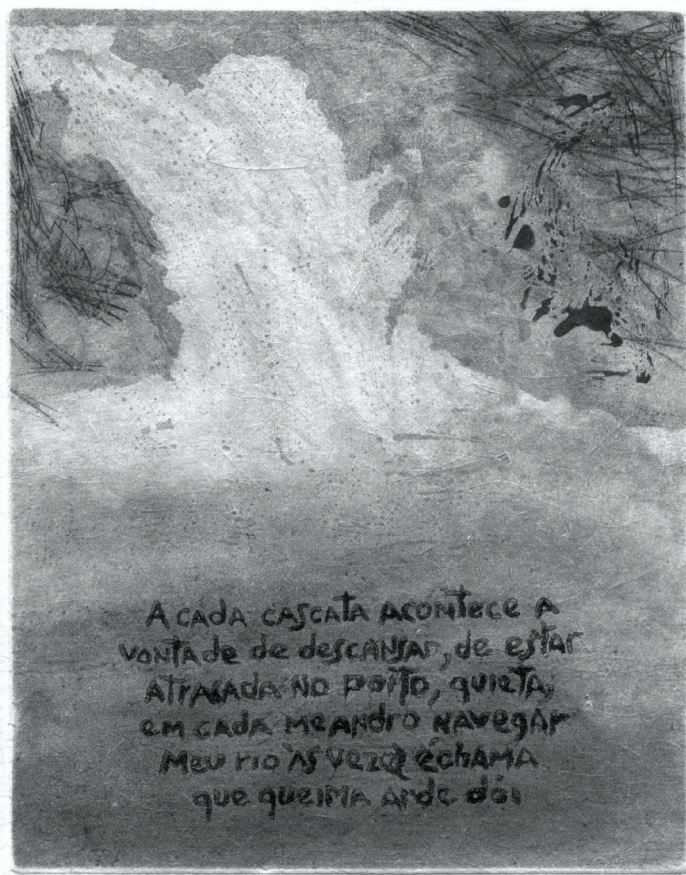 A cada cascata acontece a
vontade de descansar, de estar
atracada no porto, quieta,
em cada meandro navegar
Meu rio às vezes é chama
que queima arde dói